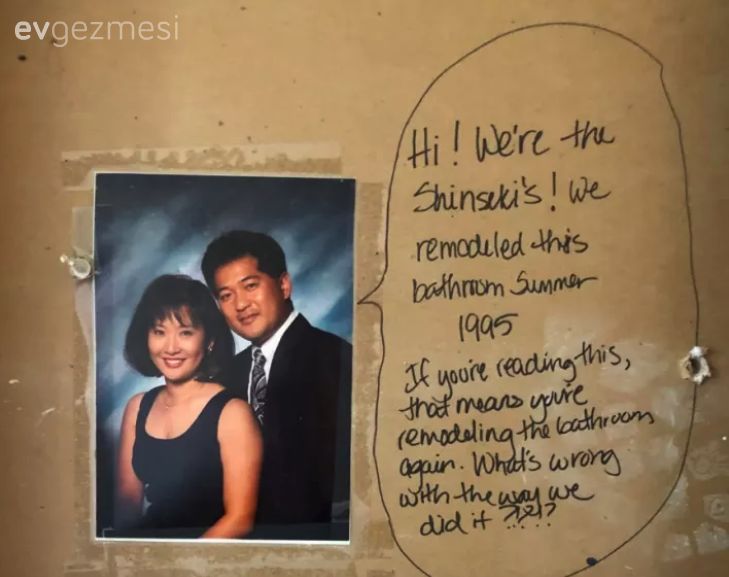 evgezmesi
Hi! We're the
Shinseki's! We
remodeled this
bathroom Summer
1995
If you're reading this,
that means you're
remodeling the bathroom
again. What's wrong
with the way we
did it ?!?!?